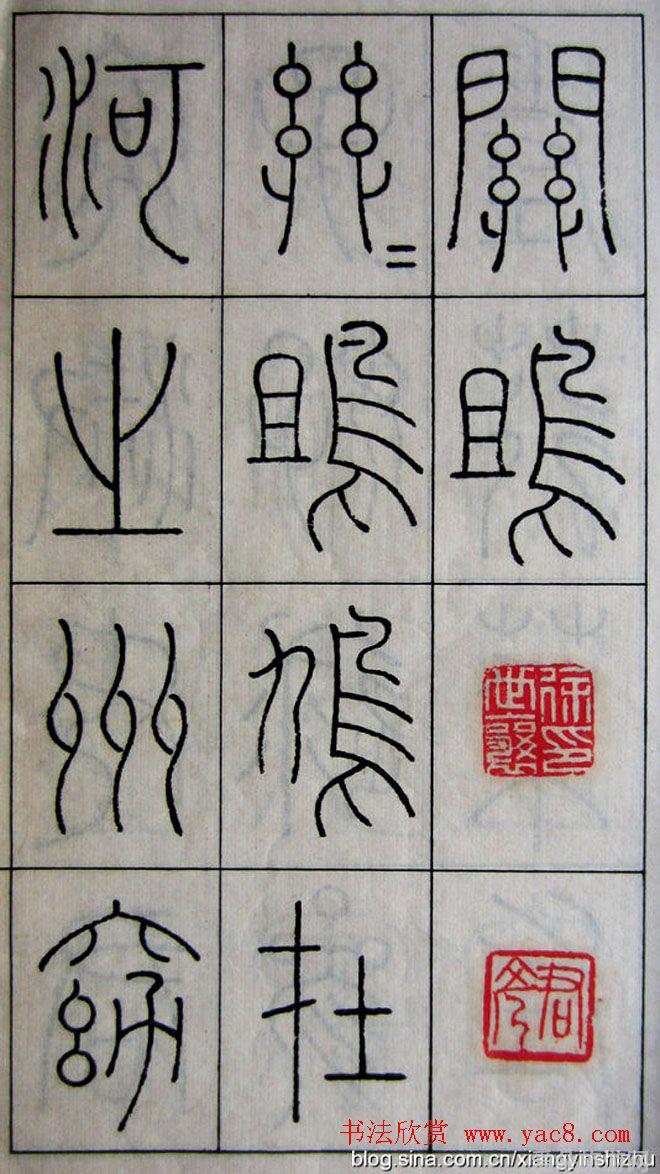 關雎
關=雎鳩在
河之州窈
书法欣赏 www.yac8.com
blog.sina.com.cn/xiangyinshizhu